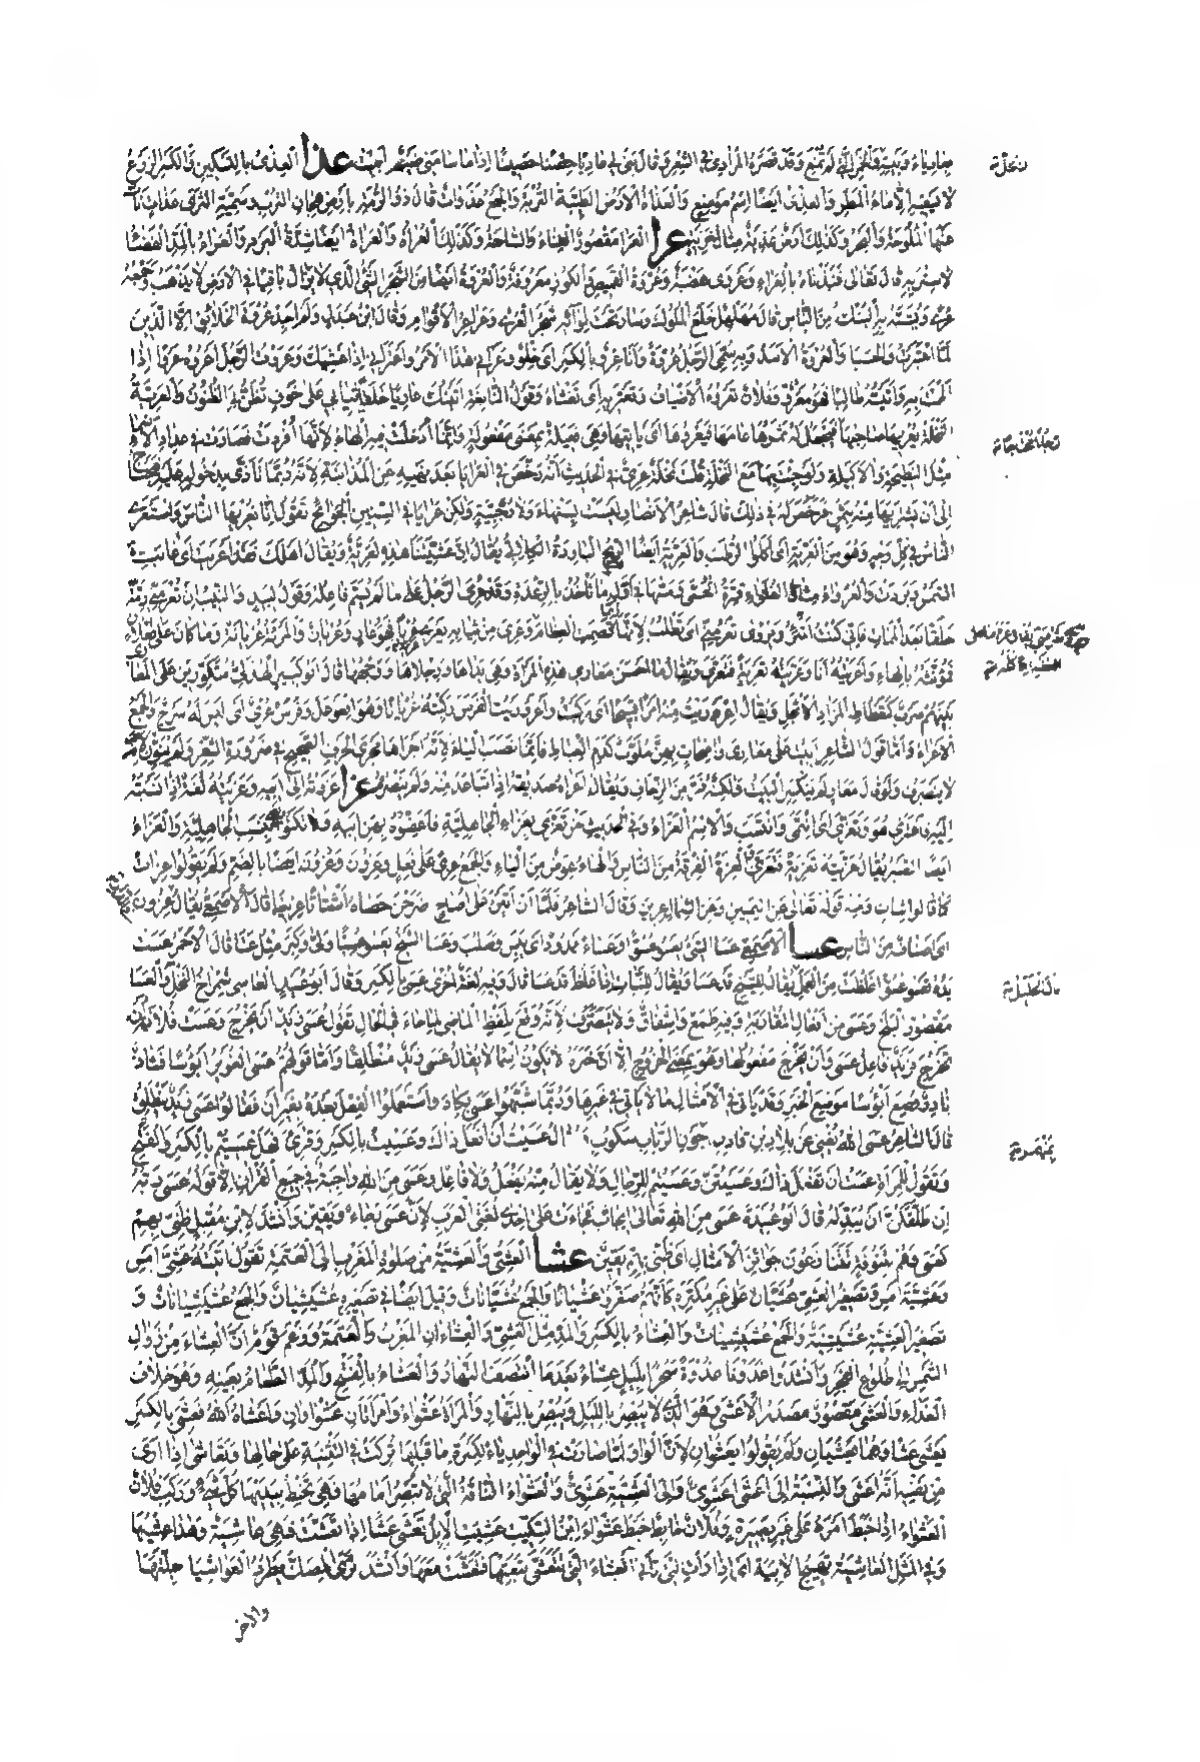 عاديا وقد قصره المرادي في الشعر وقال بنى لي عاديا حصنا حصينا إذا ما سامني ضيم أبيت عذا العذي بالتسكين والكسر الزرع
لا يسقيه إلا ماء المطر والعذي أيضا اسم موضع والعذاة الأرض الطيبة التربة والجمع عذوات قال ذو الرمة بأرض هجان الترب وسمية الثرى عذاة نأت
عنها الملوحة والبحر وكذلك أرض عذية مثال خربة عرا العرا مقصور الفناء والساحة وكذلك العراة والعراة أيضا شدة البرد والعراء بالمد الفضاء
لا ستر به قال تعالى فنبذناه بالعراء وعروى هضبة وعروة القميص والكوز معروفة والعروة أيضا من الشجر الشيء الذي لا يزال باقيا في الأرض لا يذهب وجمعه
عرى ويشبه به البنك من الناس قال مهلهل خلع الملوك وسار تحت لوائه شجر العرى وعراعر الأقوام وقال ابن عبدل ولم أجد عروة الخلائق إلا الدين
لما اعتبرت والحسبا والعروة الأسد وبه سمي الرجل عروة وأنا عرو بالكسر أي خلو وعراني هذا الأمر واعتراني إذا غشيك وعروت الرجل أعروه عروا إذا
ألممت به وأتيته طالبا فهو معرو وفلان تعروه الأضياف وتعتريه أي تغشاه وقول النابغة أتيتك عاريا خلقا ثيابي على خوف تظن بي الظنون والعرية
النخلة يعريها صاحبها فيجعل له ثمرها عامها فيعروها أي يأتيها وهي فعيلة بمعنى مفعولة وإنما أدخلت فيه الهاء لأنها أفردت فصارت في عداد الأسماء
مثل النطيحة والأكيلة ولو جئت بها مع النخلة قلت نخلة عري وفي الحديث أنه رخص في العرايا بعد نهيه عن المزابنة لأنه ربما تأذى بدخوله عليه فيحتاج
إلى أن يشتريها منه بثمن فرخص له في ذلك قال شاعر الأنصار وليست بسنهاء ولا رجبية ولكن عرايا في السنين الجوائح تقول إنا نعريها الناس واستعرى
الناس في كل وجه وهو من العرية أي أكلوا الرطب والعرية أيضا الريح الباردة الكلابي يقال إن عشيتنا هذه لعرية ويقال أهلك فقد أعريت أي غابت
الشمس وبردت والعرواء مثال الغلواء قرة الحمى ومسها في أول ما تأخذ بالرعدة وقد عري الرجل على ما لم يسم فاعله وقول لبيد والنيب إن تعر مني رمة
خلقا بعد الممات فإني كنت أتئر ويروى تعرمني أي تطلب لأنها ربما قضمت العظام وعري من ثيابه يعرى عريا فهو عار وعريان والمرأة عريانة وما كان على فعلان
فمؤنثه بالهاء وأعريته أنا وعريته تعرية فتعرى ويقال ما أحسن معاري هذه المرأة وهي يداها ورجلاها ووجهها قال أبو كبير الهذلي متكورين على المعاري
بينهم ضرب كتعطاط المزاد الأثجل ويقال اعروريت منه أمرا قبيحا أي ركبت واعروريت الفرس ركبته عريانا وهو افعوعل وفرس عري أي ليس له سرج والجمع
الأعراء وأما قول الشاعر أبيت على معاري واضحات بهن ملوب كدم العباط فإنما نصب الياء لأنه أجراها مجرى الحرف الصحيح في ضرورة الشعر ولم ينون لأنه
لا ينصرف ولو قال معار لم ينكسر البيت ولكنه فر من الزحاف ويقال أعراه صديقه إذا تباعد منه ولم ينصره عزا عزوته إلى أبيه وعزيته لغة إذا نسبته
إليه فاعتزى هو وتعزى أي انتمى وانتسب والاسم العزاء وفي الحديث من تعزى بعزاء الجاهلية فأعضوه بهن أبيه ولا تكنوا يعني بنسب الجاهلية والعزاء
أيضا الصبر يقال عزيته تعزية فتعزى والعزة الفرقة من الناس والهاء عوض من الياء والجمع عزى على فعل وعزون وعزون أيضا بالضم ولم يقولوا عزات
كما قالوا ثبات ومنه قوله تعالى عن اليمين وعن الشمال عزين وقال الشاعر فلما أن أتين على أضاخ ضرحن حصاه أشتاتا عزينا قال الأصمعي يقال في الدار عزون
أي أصناف من الناس عسا الأصمعي عسا الشيء يعسو عسوا وعساء ممدود أي يبس وصلب وعسا الشيخ يعسو عسيا ولى وكبر مثل عتا قال الأحمر عست
يده تعسو عسوا غلظت من العمل يقال للشيخ قد عسا ويقال للنبات إذا غلظ قد عسا قال وفيه لغة أخرى عسي بالكسر وقال أبو عبيد العاسي شمراخ النخل والعسا
مقصور البلح وعسى من أفعال المقاربة وفيه طمع وإشفاق ولا يتصرف لأنه وقع بلفظ الماضي لما جاء في الحال تقول عسى زيد أن يخرج وعست فلانة أن
تخرج فزيد فاعل عسى وأن يخرج مفعولها وهو بمعنى الخروج إلا أن خبره لا يكون اسما لا يقال عسى زيد منطلقا وأما قولهم عسى الغوير أبؤسا فشاذ
نادر وضع أبؤسا موضع الخبر وقد يأتي في الأمثال ما لا يأتي في غيرها وربما شبهوا عسى بكاد واستعملوا الفعل بعده بغير أن فقالوا عسى زيد ينطلق
قال الشاعر عسى الله يغني عن بلاد ابن قادر بجون الرباب سكوب العسيت أن أفعل ذاك وعسيت بالكسر وقرئ فهل عسيتم بالكسر والفتح
وتقول للمرأة عست أن تفعل ذاك وعسيتن وعسيتم للرجال ولا يقال منه يفعل ولا فاعل وعسى من الله واجبة في جميع القرآن إلا قوله عسى ربه
إن طلقكن أن يبدله قال أبو عبيدة عسى من الله تعالى إيجاب فجاءت على إحدى لغتي العرب لأن عسى رجاء ويقين وأنشد لابن مقبل ظني بهم
كعسى وهم بتنوفة يتنازعون جوائز الأمثال أي ظني بهم يقين عشا العشي والعشية من صلوة المغرب إلى العتمة تقول أتيته عشي أمس
وعشية أمس وتصغير العشي عشيان على غير مكبره كأنهم صغروا عشيانا والجمع عشيانات وقيل أيضا في تصغيره عشيشيان والجمع عشيشيانات و
تصغير العشية عشيشية والجمع عشيشيات والعشاء بالكسر والمد مثل العشي والعشاءان المغرب والعتمة وزعم قوم أن العشاء من زوال
الشمس إلى طلوع الفجر وأنشدوا غدونا غدوة سحرا بليل عشاء بعدما انتصف النهار والعشاء بالفتح والمد الطعام بعينه وهو خلاف
الغداء والعشى مقصور مصدر الأعشى وهو الذي لا يبصر بالليل ويبصر بالنهار والمرأة عشواء وامرأتان عشواوان وأعشاه الله فعشي بالكسر
يعشى عشا وهما يعشيان ولم يقولوا يعشوان لأن الواو لما صارت في الواحد ياء لكسرة ما قبلها تركت في التثنية على حالها وتعاشى إذا أرى
من نفسه أنه أعشى والنسبة إلى أعشى أعشوي وإلى العشية عشوي والعشواء الناقة التي لا تبصر أمامها فهي تخبط بيديها كل شيء وركب فلان
العشواء إذا خبط أمره على غير بصيرة وفلان خابط خبط عشواء ابن السكيت عشيت الإبل تعشى عشا إذا تعشت فهي عاشية وهذا عشيها
وفي المثل العاشية تهيج الآبية أي إذا رأت التي تأبى العشاء التي تتعشى تبعتها فتعشت معها وأنشد ترى المصك يطرد العواشيا جلتها
والأخر